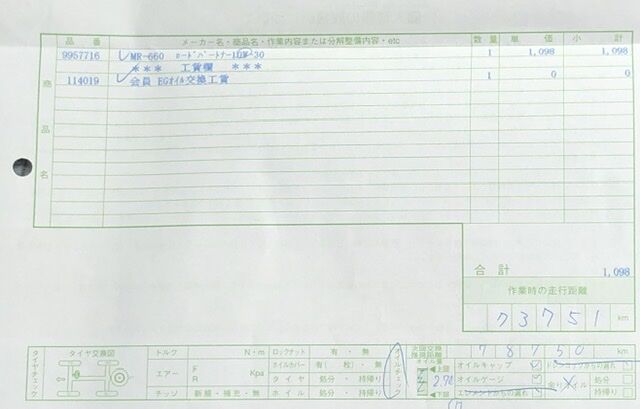 品 番 メーカー名・商品名・作業内容または分解整備内容・etc 数量 単 価 小 計
9957716 MR-660 1 1,098 1,098
*** 工賃欄 ***
114019 会員 EGオイル交換工賃 1 0 0
商
品
名
合 計 1,098
作業時の走行距離
73751 km
タイヤチェック
タイヤ交換図
トルク N・m
エアー F R Kpa
チッソ 新規・補充・無
ロックナット 有・無
ホイルカバー 有( 枚)・無
タイヤ 処分・持帰り
ホイール 処分・持帰り
オイルチェック
次回交換推奨距離 78750 km
オイル量
上限
下限
オイルキャップ
オイルゲージ
エレメントからの漏れ
ドレンコックからの漏れ
処分
持帰り